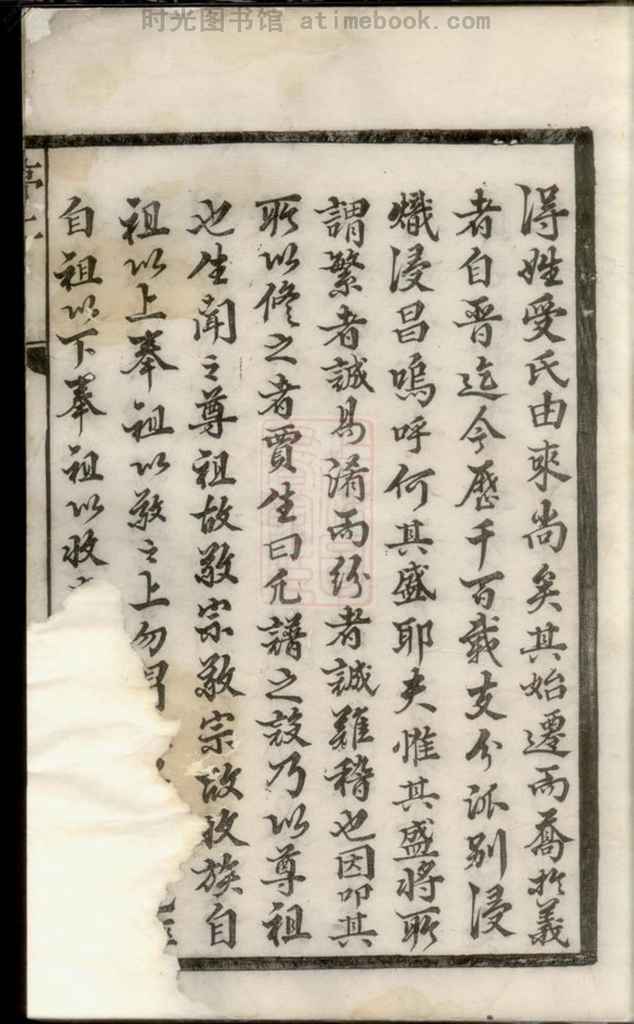 时光图书馆 atimebook.com
得姓受氏由來尚矣其始遷而喬於義
者自晋迄今歷千百載支分派别浸
熾浸昌嗚呼何其盛耶夫惟其盛將所
謂繁者誠易淆而紛者誠難稽也因叩其
所以修之者賈生曰凡譜之設乃以尊祖
也生聞之尊祖故敬宗敬宗故收族自
祖以上奉祖以敬之上勿
自祖以下奉祖以收